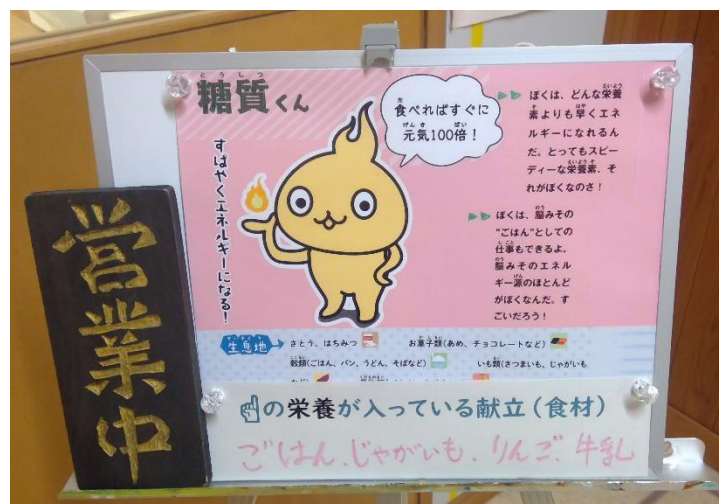 糖質くん
食べればすぐに
元気100倍！
すばやくエネルギーになる！
ぼくは、どんな栄養
素よりも早くエネ
ルギーになれるん
だ。とってもスピー
ディーな栄養素、そ
れがぼくなのさ！
ぼくは、脳みその
“ごはん”としての
仕事もできるよ。
脳みそのエネル
ギー源のほとんど
がぼくなんだ。す
ごいだろう！
生息地
さとう、はちみつ
お菓子類(あめ、チョコレートなど)
穀類(ごはん、パン、うどん、そばなど)
いも類(さつまいも、じゃがいも
の栄養が入っている献立(食材)
ごはん、じゃがいも、りんご、牛乳
営業中